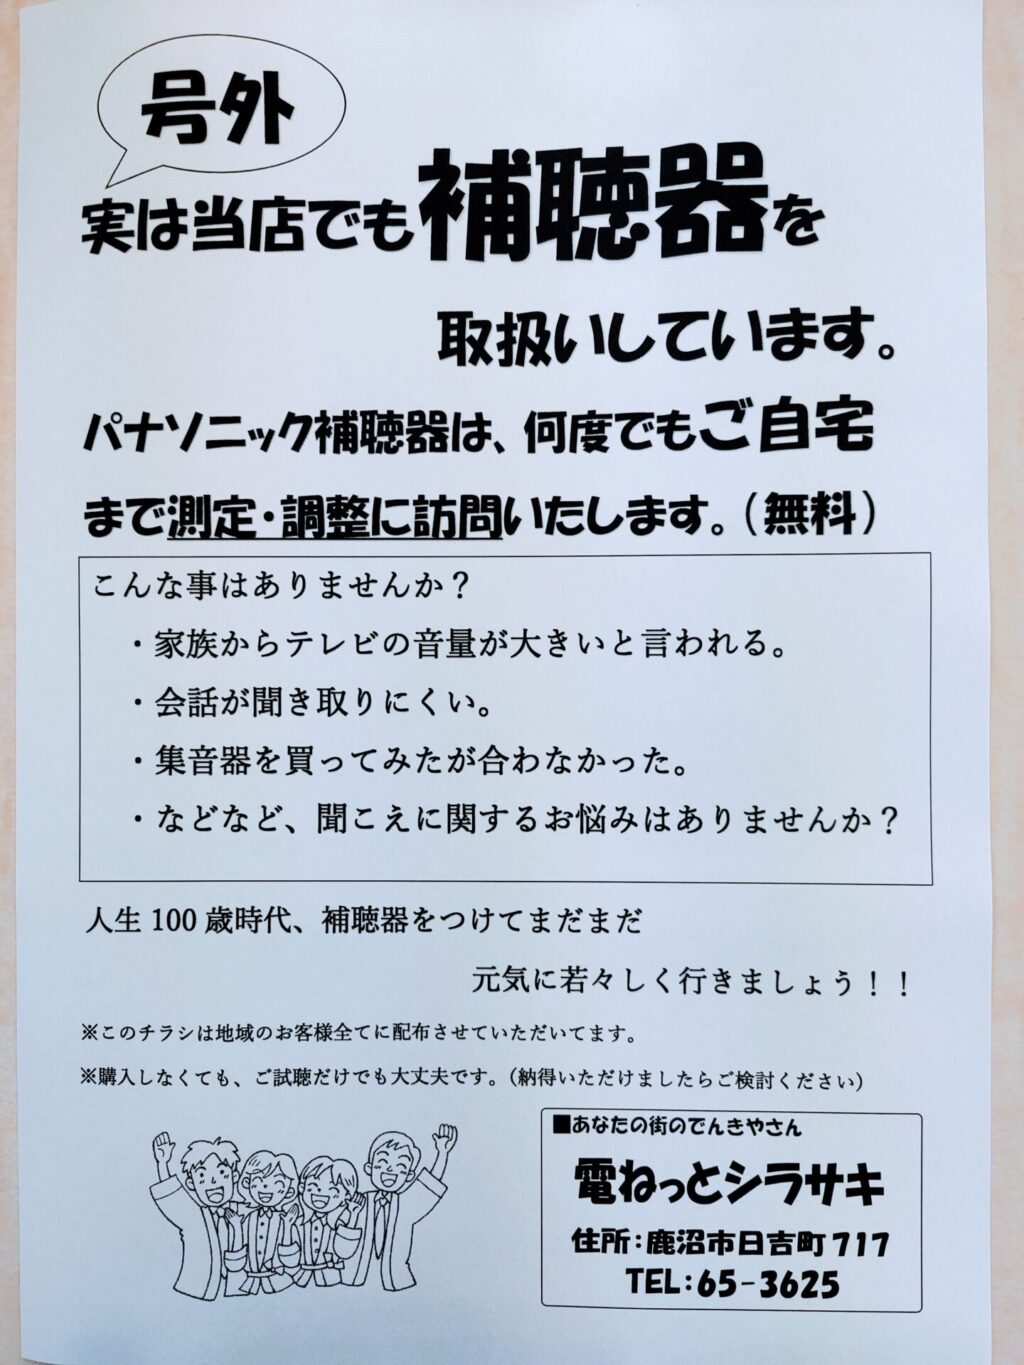 号外
実は当店でも補聴器を
取扱いしています。
パナソニック補聴器は、何度でもご自宅
まで測定・調整に訪問いたします。（無料）
こんな事はありませんか？
・家族からテレビの音量が大きいと言われる。
・会話が聞き取りにくい。
・集音器を買ってみたが合わなかった。
・などなど、聞こえに関するお悩みはありませんか？
人生 100 歳時代、補聴器をつけてまだまだ
元気に若々しく行きましょう！！
※このチラシは地域のお客様全てに配布させていただいてます。
※購入しなくても、ご試聴だけでも大丈夫です。（納得いただけましたらご検討ください）
■あなたの街のでんきやさん
電ねっとシラサキ
住所：鹿沼市日吉町717
TEL：65-3625